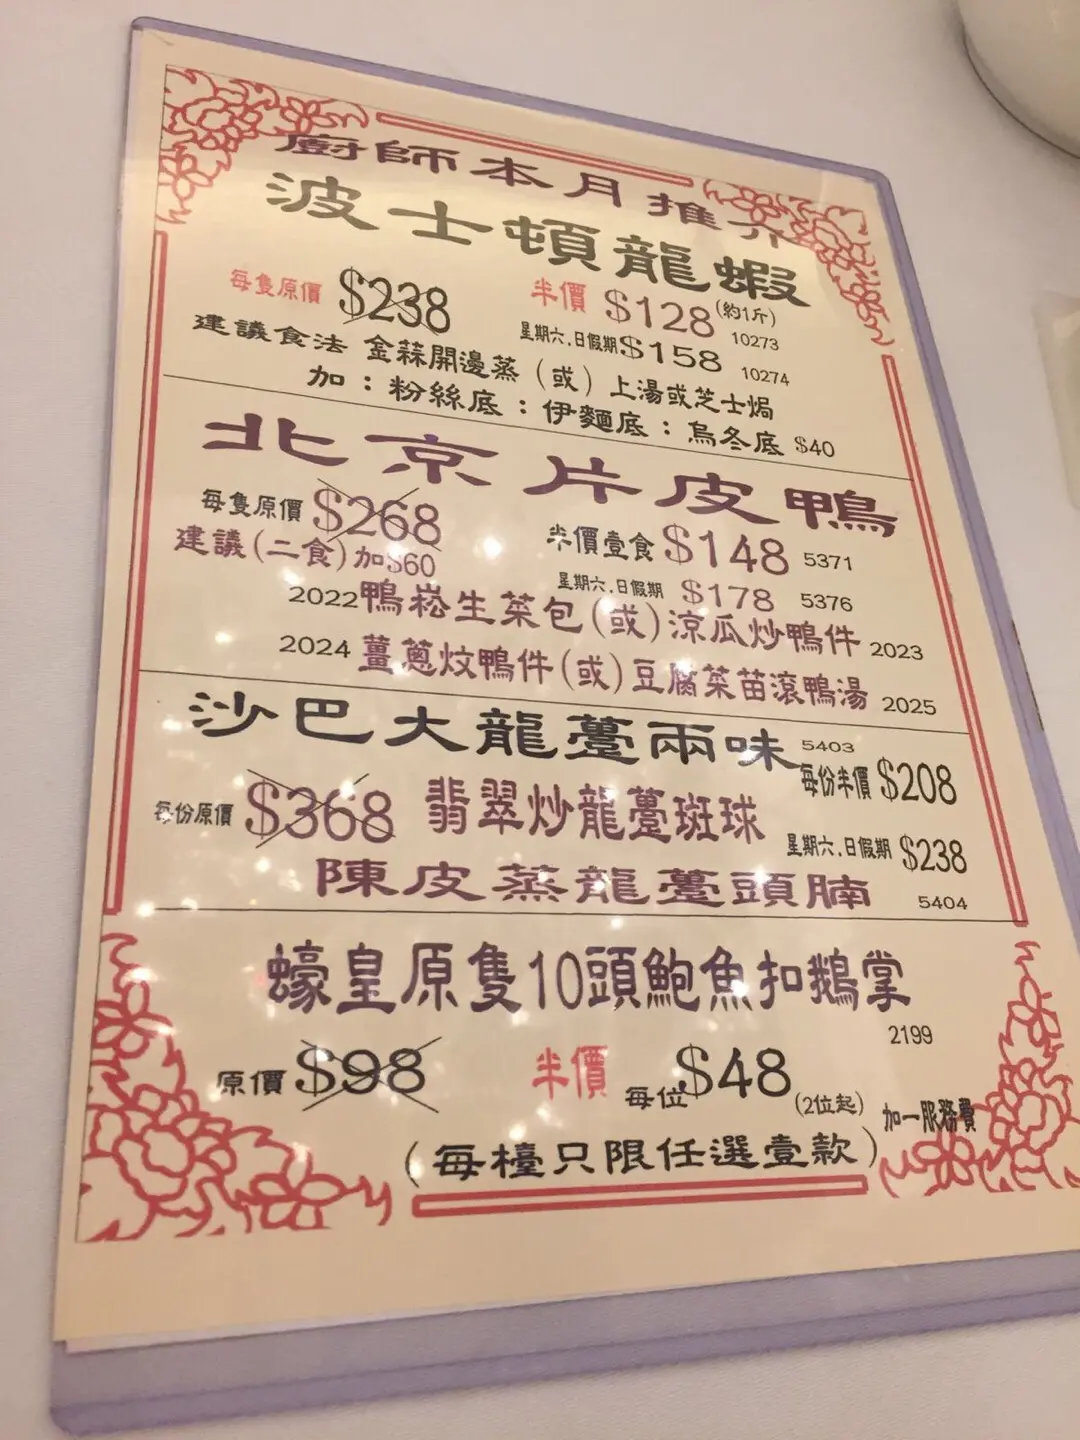 廚師本月推介
波士頓龍蝦
每隻原價 $238 半價 $128 (約1斤) 10273
星期六.日假期 $158 10274
建議食法 金蒜開邊蒸 (或) 上湯或芝士焗
加：粉絲底：伊麵底：烏冬底 $40
北京片皮鴨
每隻原價 $268 半價壹食 $148 5371
建議(二食)加$60 星期六.日假期 $178 5376
2022 鴨崧生菜包(或)涼瓜炒鴨件 2023
2024 薑蔥炆鴨件(或)豆腐菜苗滾鴨湯 2025
沙巴大龍躉兩味 5403
每份半價 $208
每份原價 $368 翡翠炒龍躉斑球
星期六.日假期 $238
陳皮蒸龍躉頭腩 5404
蠔皇原隻10頭鮑魚扣鵝掌
2199
原價 $98 半價 每位 $48 (2位起) 加一服務費
(每檯只限任選壹款)